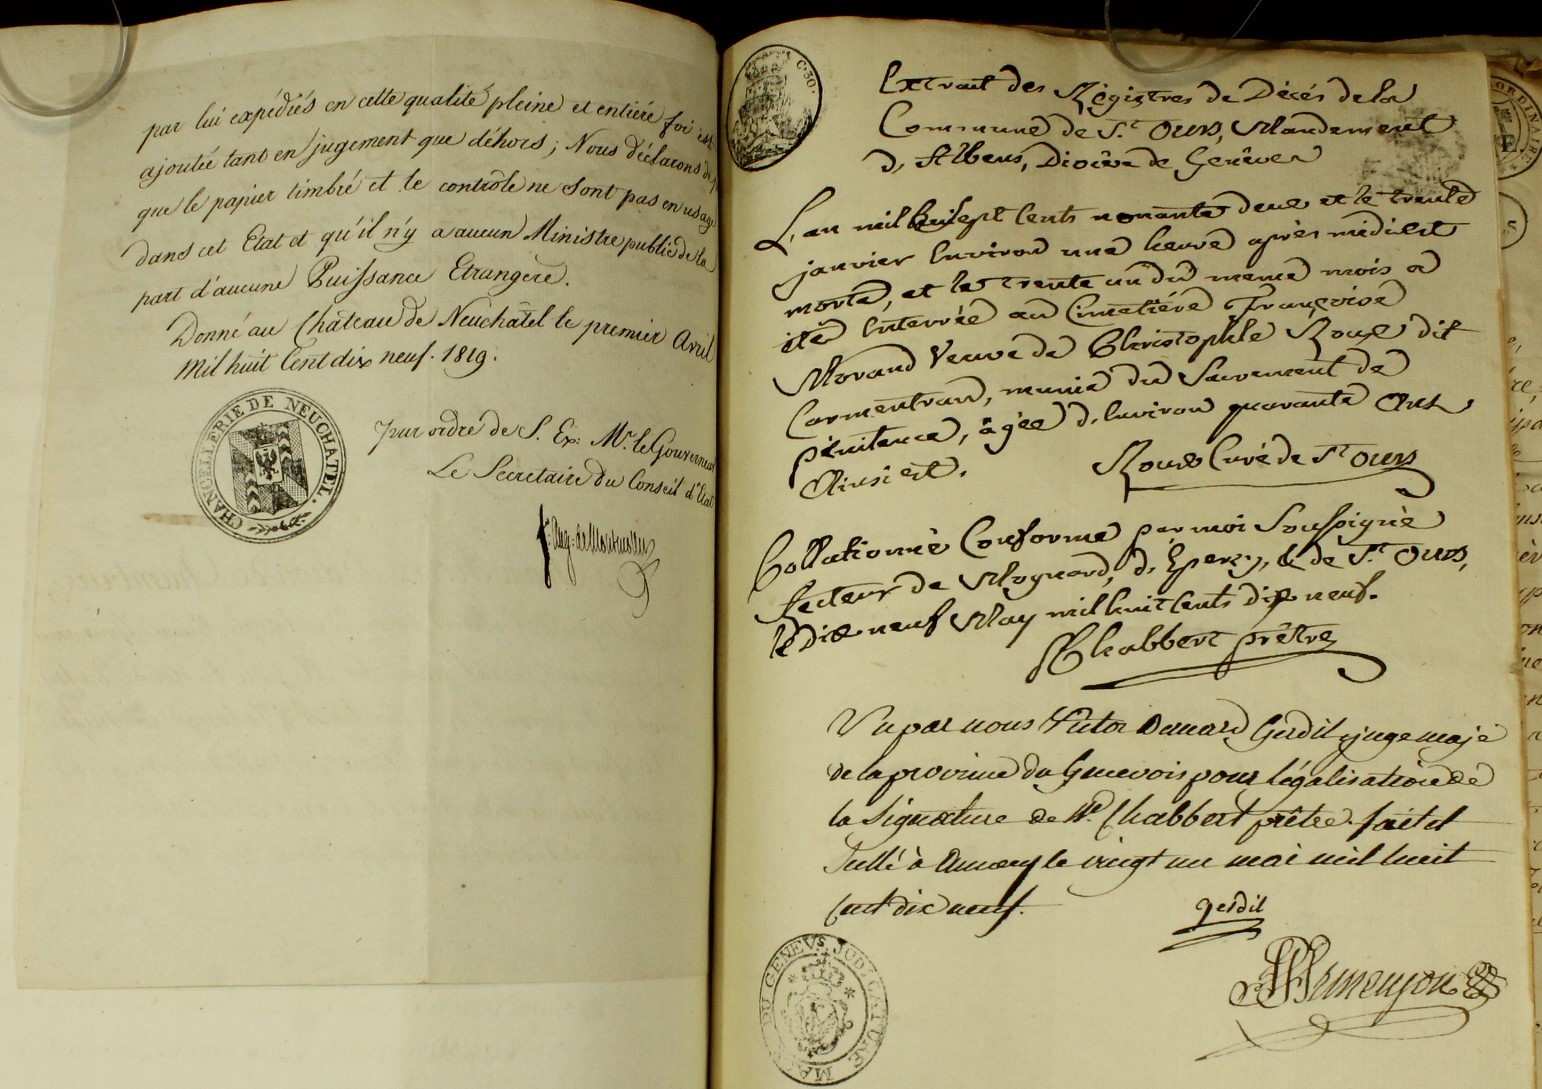 par lui expédiés en cette qualité pleine et entiére foi est
ajoutée tant en jugement que déhors; Nous déclarons de
que le papier timbré et le contrôle ne sont pas en usage
dans cet Etat et qu'il n'y a aucun Ministre public de la
part d'aucune Puissance Etrangère.
Donné au Château de Neuchâtel le premier Avril
Mil huit Cent dix neuf. 1819.
CHANCELLERIE DE NEUCHATEL.
Par ordre de S. Ex: Mr. le Gouverneur
Le Secretaire du Conseil d'Etat
C. 30.
Extrait des Régistres de Décés de la
Commune de St. Ours, Mandement
d'Albens, Diocêse de Genêve
L'an mil sept Cents nonante deux et le trente
janvier Environ une heure après midi est
morte, et le trente un du meme mois a
été Enterrée au Cimetiére Françoise
Morand Veuve de Christophle Roux dit
Carmentran, munie du Sacrement de
pénitence, agée d'Environ quarante Ans,
Ainsi est.
Roux Curé de St Ours
Collationné Conforme par moi Soussigné
Recteur de Mognard, d'Epercy, & de St. Ours,
le Dix neuf May mil huit Cents dix neuf.
Chabbert prêtre
Vu par nous Victor Gerdil juge maje
de la province du Genevois pour légalisation de
la Signature de Rd. Chabbert prêtre. fait et
Scellé à Annecy le vingt un mai mil huit
Cent dix neuf.
gerdil
DU GENEVs. JUDICATURE MA
ORDINAIRE